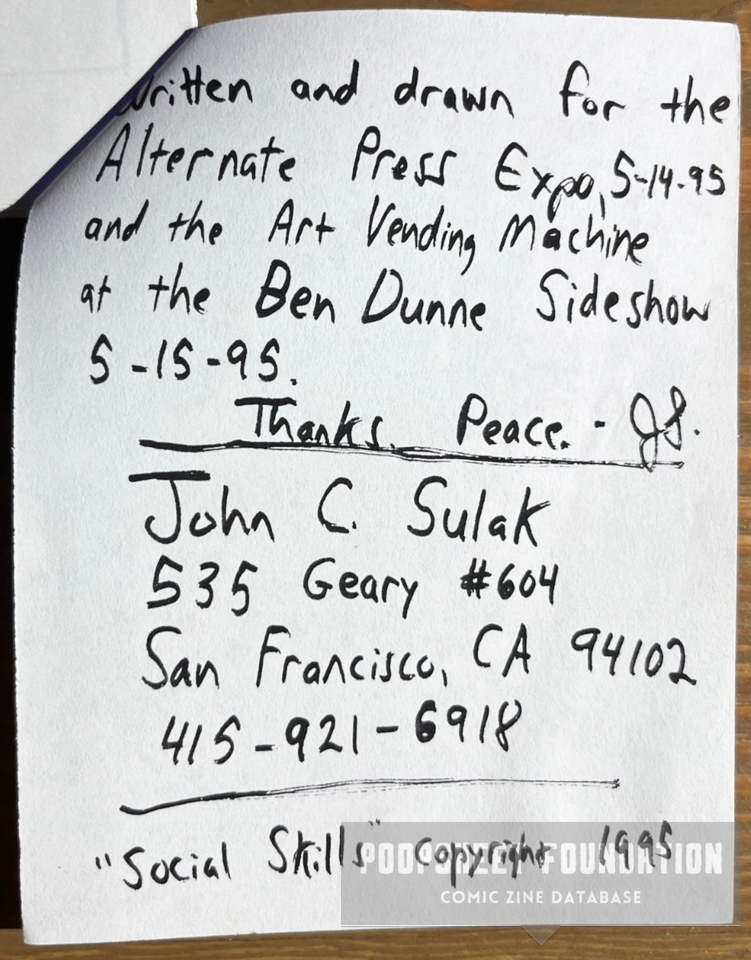 Written and drawn for the
Alternate Press Expo, 5-14-95
and the Art Vending Machine
at the Ben Dunne Sideshow
5-15-95.
Thanks. Peace. - JS.
John C. Sulak
535 Geary #604
San Francisco, CA 94102
415-921-6918
"Social Skills" copyright 1995
POOPSHEET FOUNDATION
COMIC ZINE DATABASE